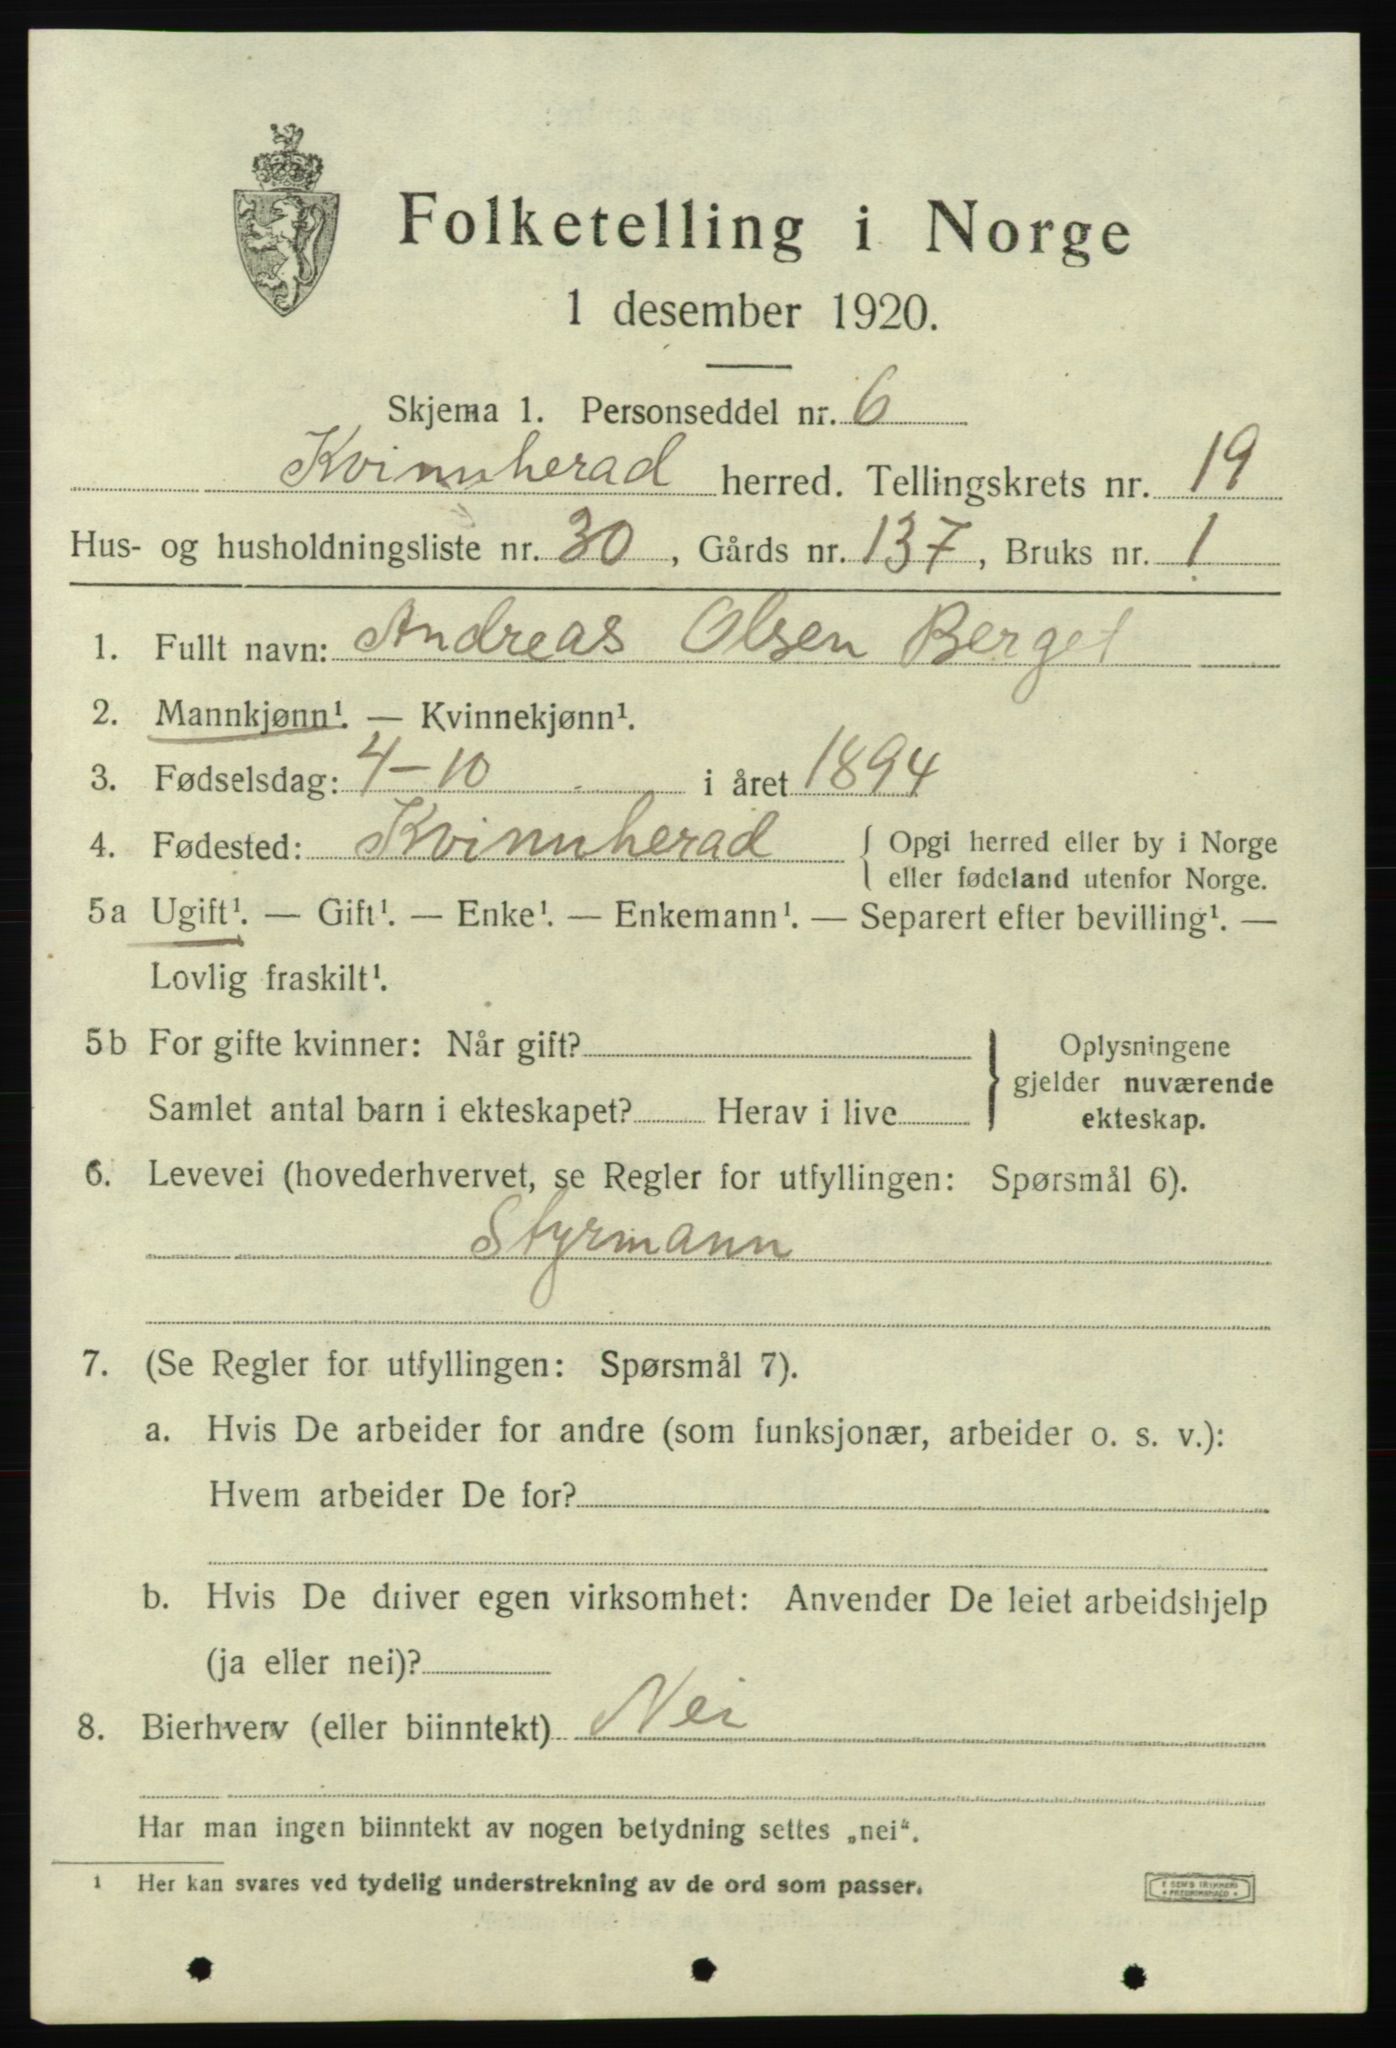 Folketelling i Norge
1 desember 1920.
Skjema 1. Personseddel nr. 6
Kvinnherad herred. Tellingskrets nr. 19
Hus- og husholdningsliste nr. 30, Gårds nr. 137, Bruks nr. 1
1. Fullt navn: Andreas Olsen Berget
2. Mannkjønn¹. — Kvinnekjønn¹.
3. Fødselsdag: 4-10 i året 1894
4. Fødested: Kvinnherad { Opgi herred eller by i Norge
eller fødeland utenfor Norge.
5a Ugift¹. — Gift¹. — Enke¹. — Enkemann¹. — Separert efter bevilling¹. —
Lovlig fraskilt¹.
5b For gifte kvinner: Når gift? } Oplysningene
gjelder nuværende
Samlet antal barn i ekteskapet? Herav i live
ekteskap.
6. Levevei (hovederhvervet, se Regler for utfyllingen: Spørsmål 6).
Styrmann
7. (Se Regler for utfyllingen: Spørsmål 7).
a. Hvis De arbeider for andre (som funksjonær, arbeider o. s. v.):
Hvem arbeider De for?
b. Hvis De driver egen virksomhet: Anvender De leiet arbeidshjelp
(ja eller nei)?
8. Bierhverv (eller biinntekt) Nei
Har man ingen biinntekt av nogen betydning settes „nei“.
1 Her kan svares ved tydelig understrekning av de ord som passer.